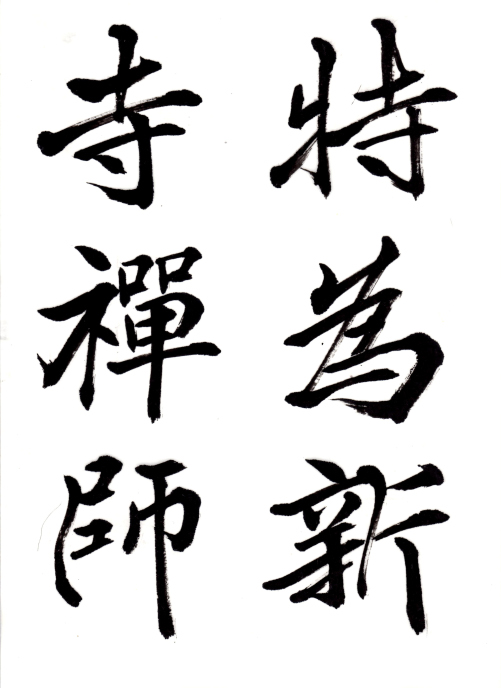 特為新
寺禪師